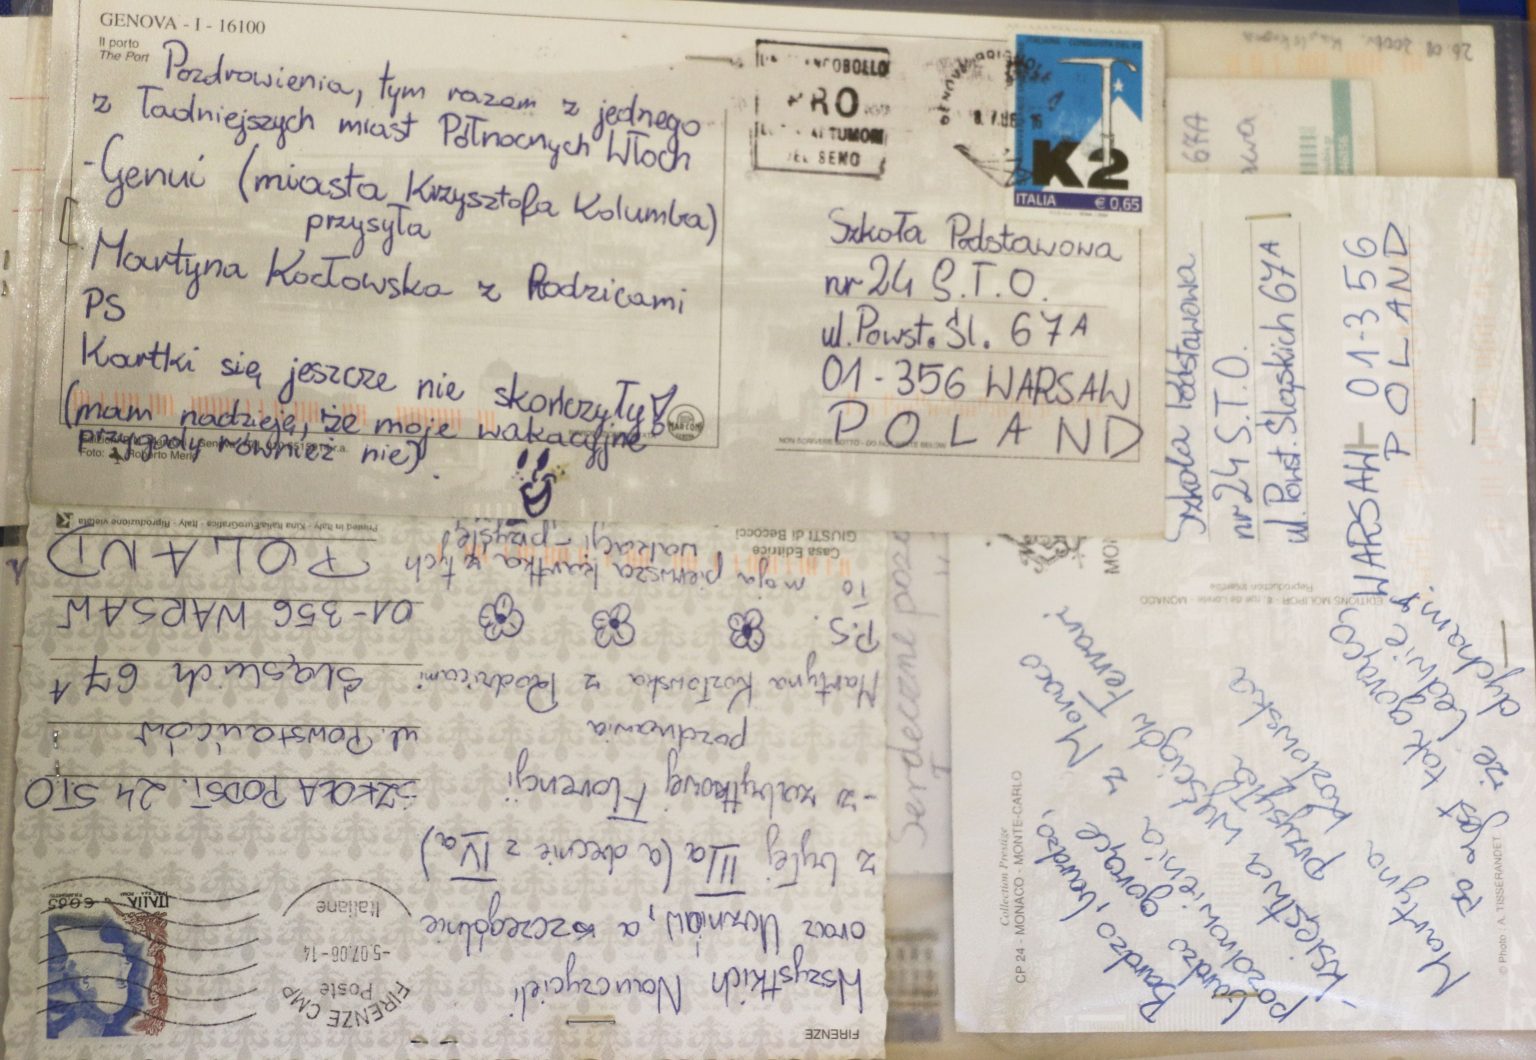 GENOVA - I - 16100
Il porto
The Port
Pozdrowienia, tym razem z jednego
z ładniejszych miast Północnych Włoch
-Genui (miasta Krzysztofa Kolumba)
przysyła
Martyna Kozłowska z Rodzicami
PS
Kartki się jeszcze nie skończyły!
(mam nadzieję, że moje wakacyjne
przygody również nie).
Foto: Roberto Merlo
TUMORI
DEL SENO
K2
ITALIA € 0,65
Szkoła Podstawowa
nr 24 S.T.O.
ul. Powst. Śl. 67A
01-356 WARSAW
POLAND
26.08.2006r.
67A
Szkoła Podstawowa
nr 24 S.T.O.
ul. Powst. Śląskich 67A
WARSAW 01-356
POLAND
EDITIONS MOLIPOR - 8, rue de Lorète - MONACO
Reproduction interdite
Bardzo, bardzo,
bardzo gorące
pozdrowienia z Monaco
-księstwa wyścigów Ferrari
przysyła
Martyna Kozłowska
PS Jest tak gorąco,
że ledwie
dycham.
Collection Prestige
CP 24 - MONACO - MONTE-CARLO
© Photo: A. TISSERANDET
Serdeczne poz
FIRENZE
Wszystkich Nauczycieli
oraz Uczniów, a szczególnie
z byłej IIIa (a obecnie z IVa)
-z zabytkowej Florencji
pozdrawia
Martyna Kozłowska z Rodzicami
P.S.
To moja pierwsza kartka z tych
wakacji - przysięgam
FIRENZE CMP
Poste
-5.07.06-14
Italiane
ITALIA
€ 0,65
SZKOŁA PODST. 24 STO
ul. Powstańców
Śląskich 67A
01-356 WARSAW
POLAND
Casa Editrice
GIUSTI di Becocci
Printed in Italy - Kina Italia/EuroGrafica - Italy - Riproduzione vietata